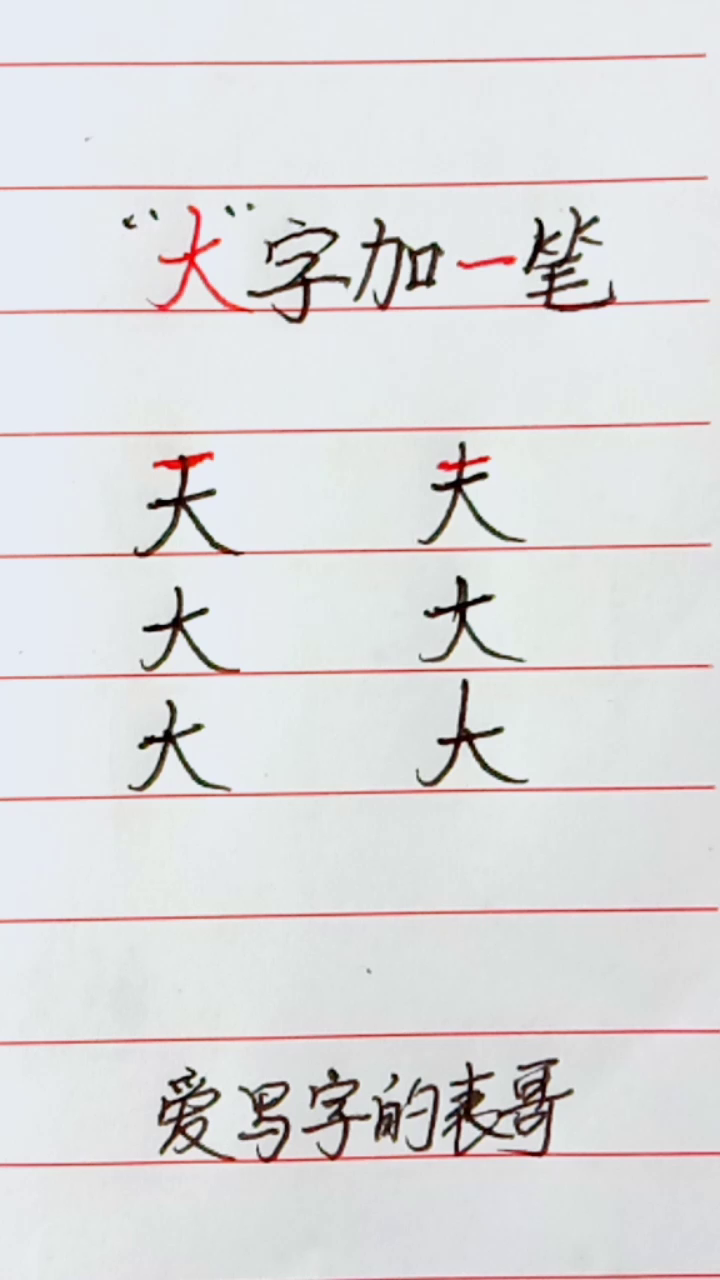 “大”字加一笔
天 夫
大 大
大 大
爱写字的表哥